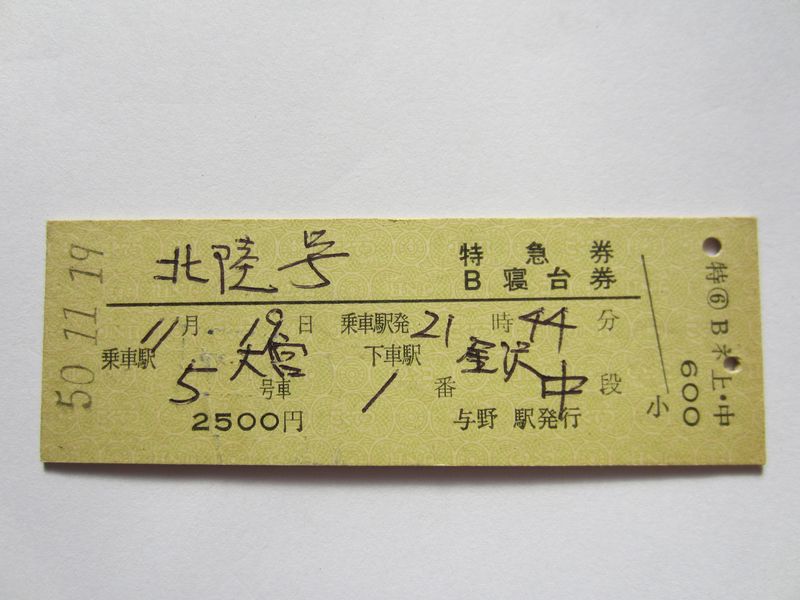 50.11.19
北陸号
特急券
B寝台券
11月19日 乗車駅発21時44分
乗車駅 大宮 下車駅 金沢
5号車 1番 中段
2500円 与野駅発行
小
特⑥B 上・中
600